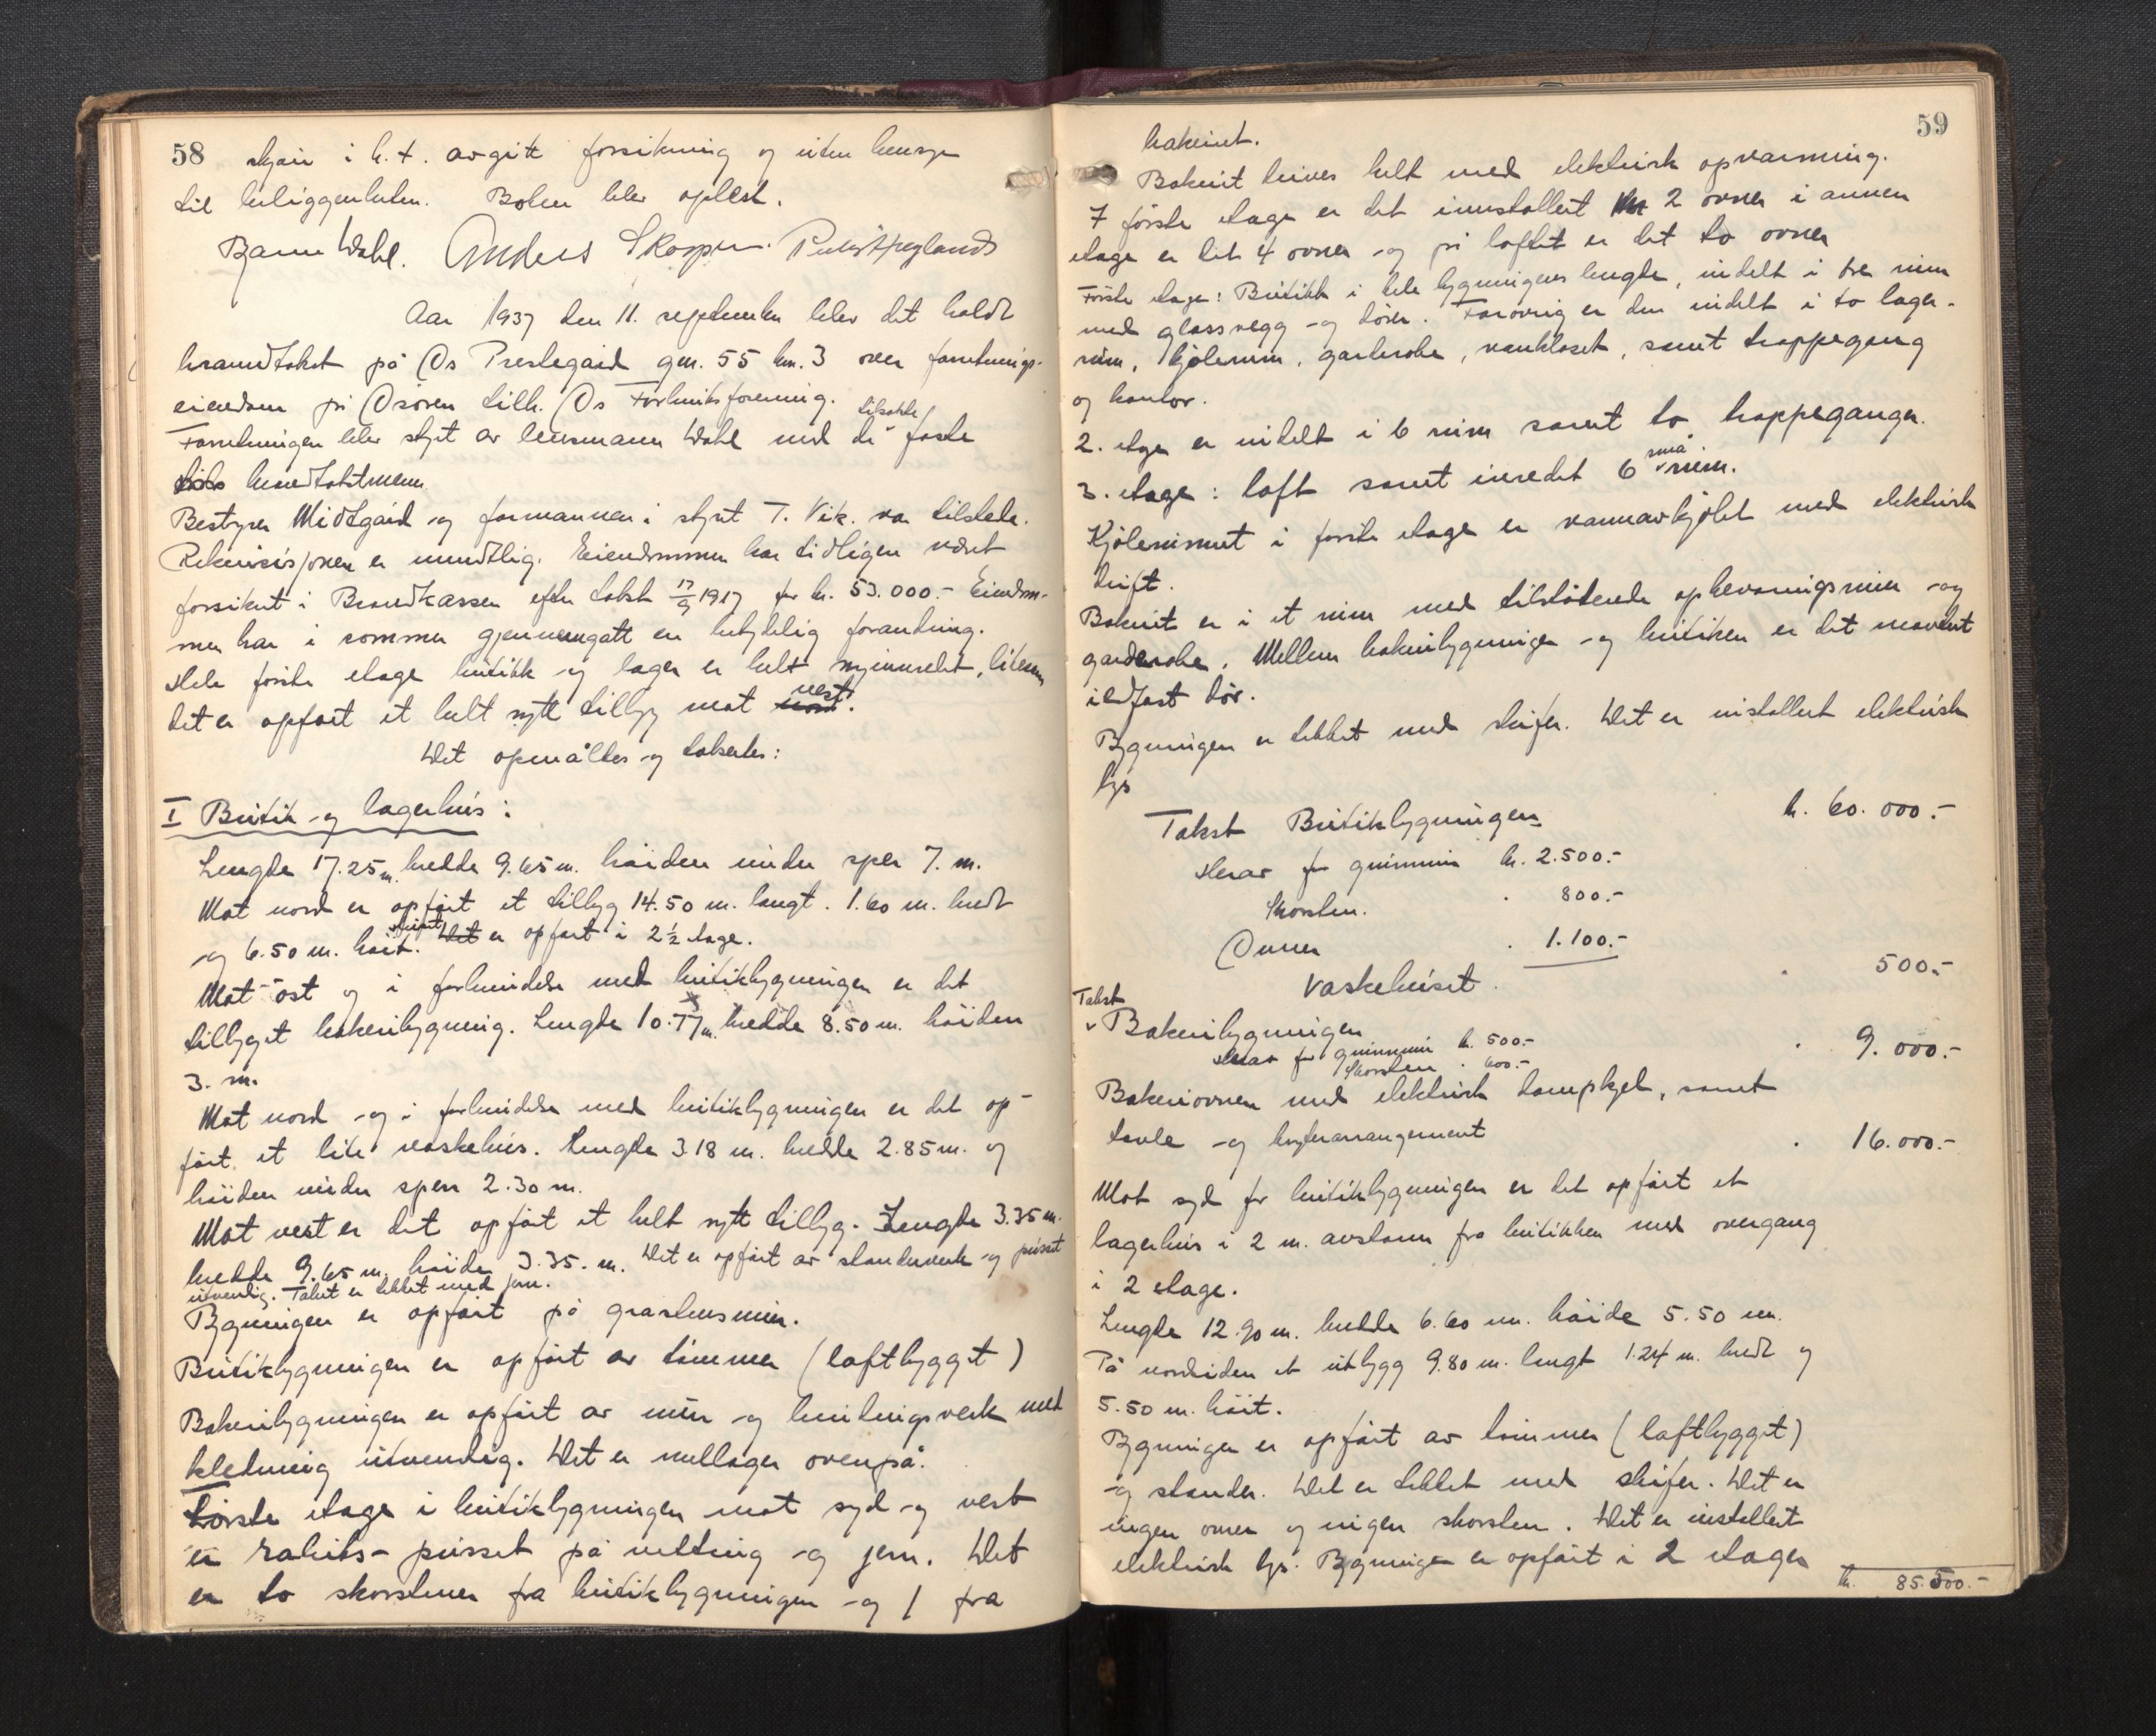 58
skjøn i h. t. avgitt forsikring og uten hensyn
til beliggenheten. Boken blev oplest.
Bjarne Wahl. Anders Skorpen.
Aar 1937 den 11. september blev det holdt
brandtakst på Os Prestegard gnr. 55 bnr. 3 over forretnings-
eiendom på Osøren tilh. Os Forbruksforening.
Forretningen blev styrt av lensmann Wahl med de tilkalte faste
brandtakstmenn.
Bestyrer Midtgård og formannen i styret T. Vik. var tilstede.
Rekvisisjonen er mundtlig. Eiendommen har tidligere været
forsikret i Brandkassen efter takst 17/9 1917 for kr. 53.000.- Eiendom-
men har i sommer gjennemgått en betydelig forandring.
Hele første etage butikk og lager er helt nyinnredet, likesom
det er opført et helt nytt tilbyg mot vest.
Det opmåltes og takseres:
I Butik og lagerhus:
Lengde 17.25 m. bredde 9.65 m. høiden under sper 7. m.
Mot nord er opført et tilbyg 14.50 m. langt. 1.60 m. bredt
og 6.50 m. høit. Huset er opført i 2 1/2 etage.
Mot øst og i forbindelse med butikbygningen er det
tilbygget bakeribygning. Lengde 10.77 m. bredde 8.50 m. høiden
3. m.
Mot nord og i forbindelse med butikbygningen er det op-
ført et lite vaskehus. Lengde 3.18 m. bredde 2.85 m. og
høiden under sper 2.30 m.
Mot vest er det opført et helt nytt tilbyg. Lengde 3.35 m.
bredde 9.65 m. høide 3.35. m. Det er opført av stenderverk og pusset
utvendig. Taket er tekket med jern.
Bygningen er opført på grastensmur.
Butikbygningen er opført av tømmer (laftbygget)
Bakeribygningen er opført av mur og bindingsverk med
kledning utvendig. Det er mellager ovenpå.
Første etage i butikbygningen mot syd og vest
er rabits- pusset på netting og jern. Det
er to skorstener fra butikbygningen og 1 fra
59
bakeriet.
Bakeriet drives helt med elektrisk opvarming.
I første etage er det innstallert 2 ovner i annen
etage er det 4 ovner og på loftet er det to ovner
Første etage: Butikk i hele bygningens lengde, indelt i tre rum
med glassvegg og dører. Forøvrig er den indelt i to lager-
rum, kjølerum, garderobe, vannkloset, samt trappegang
og kontor.
2. etage er indelt i 6 rum samt to trappeganger.
3. etage: loft samt inredet 6 små rum.
Kjølerummet i første etage er vannavkjølet med elektrisk
drift.
Bakeriet er i et rum med tilstøtende opbevaringsrum og
garderobe. Mellem bakeribygningen og butiken er det
ildfast dør.
Bygningen er tekket med skifer. Det er installert elektrisk
lys
Takst Butikbygningen kr. 60.000.-
Herav for grunnmur kr. 2.500.-
Skorsten. " 800.-
Ovner " 1.100.-
Vaskehuset. " 500.-
Takst
Bakeribygningen " 9.000.-
Herav for grunnmur kr. 500.-
Skorsten " 600.-
Bakeriovnen med elektrisk dampkjel, samt
tavle og bryterarrangement " 16.000.-
Mot syd for butikbygningen er det opført et
lagerhus i 2 m. avstann fra butikken med overgang
i 2 etage.
Lengde 12.90 m. bredde 6.60 m. høide 5.50 m.
På nordsiden et utbygg 9.80 m. lengt 1.24 m. bredt og
5.50 m. høit.
Bygningen er opført av tømmer (laftbygget)
og stender. Det er tekket med skifer. Det er
ingen ovner og ingen skorsten. Det er installert
elektrisk lys. Bygningen er opført i 2 etager
kr. 85.500.-